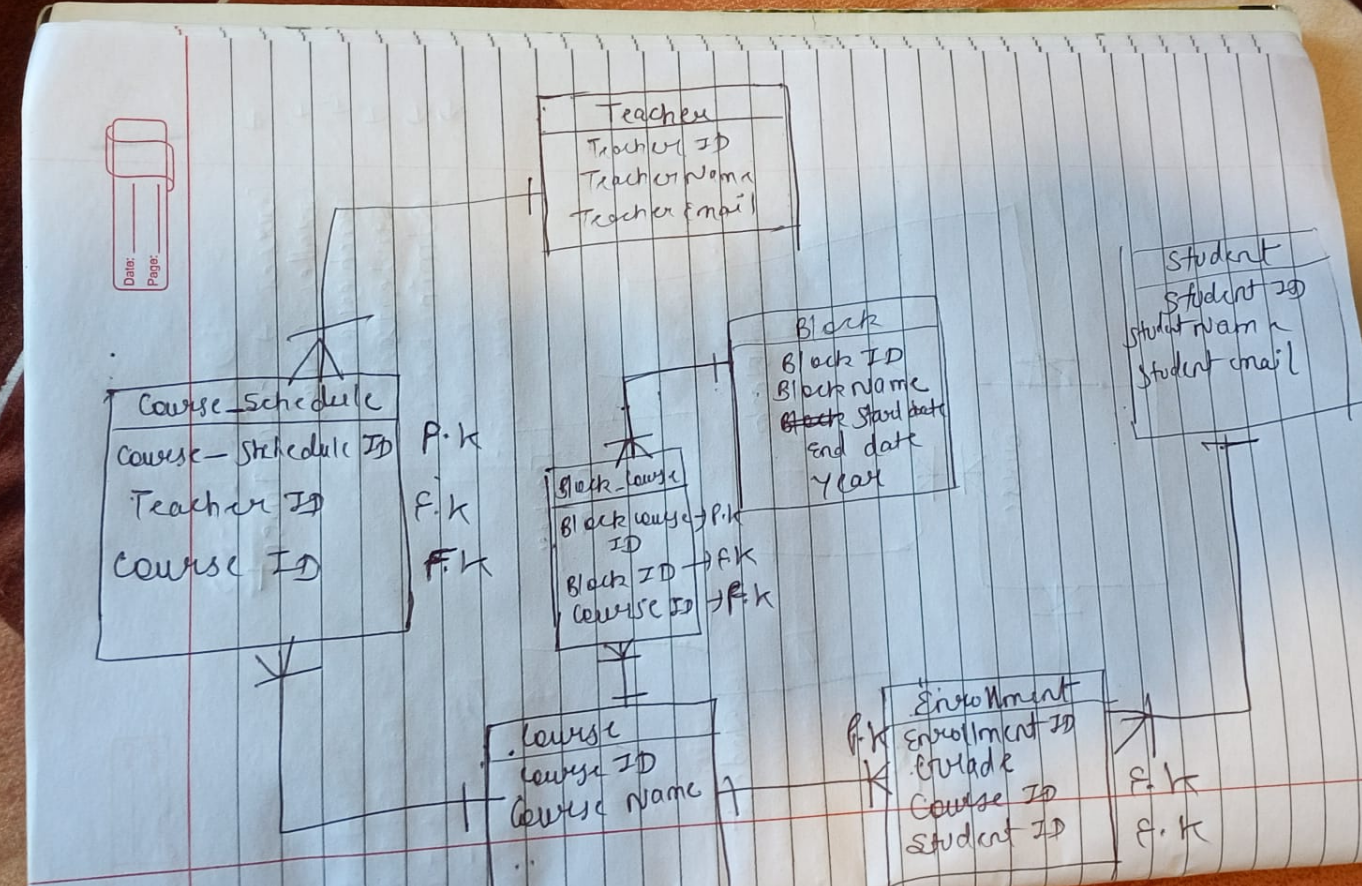 Date:
Page:
Teacher
Teacher ID
Teacher Name
Teacher Email
Student
Student ID
Student Name
Student email
Block
Block ID
Block Name
Start date
End date
Year
Course_Schedule
Course_Schedule ID P.K
Teacher ID F.K
Course ID F.K
Block_Course
Block course → P.K
ID
Block ID → F.K
Course ID → F.K
Course
Course ID
Course Name
Enrollment
P.K Enrollment ID
Grade
Course ID F.K
Student ID F.K